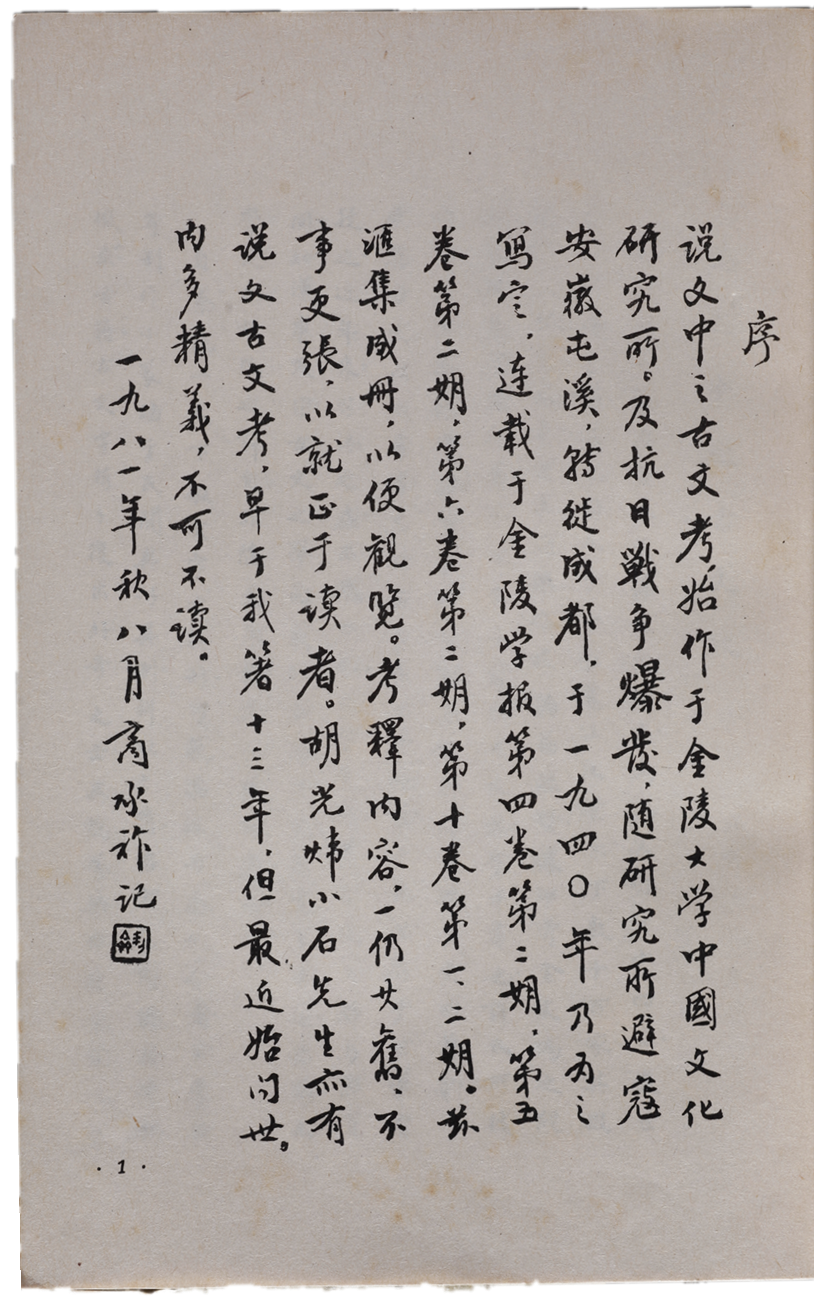 序
说文中之古文考，始作于金陵大学中國文化
研究所。及抗日戰争爆發，随研究所避寇
安徽屯溪，转徙成都，于一九四〇年乃为之
寫定，连载于金陵学报第四卷第二期，第五
卷第二期，第六卷第二期，第十卷第一、二期。兹
滙集成冊，以便觀覽。考釋内容，一仍其舊，不
事更張，以就正于读者。胡光炜小石先生亦有
说文古文考，早于我箸十三年，但最近始问世。
内多精義，不可不读。
一九八一年秋八月商承祚记
·1·